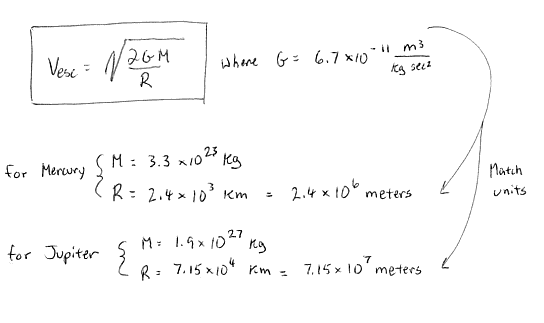 Vesc = √(2GM/R) where G = 6.7 × 10⁻¹¹ m³/kg sec²
for Mercury { M = 3.3 × 10²³ kg
R = 2.4 × 10³ km = 2.4 × 10⁶ meters
Match
units
for Jupiter { M = 1.9 × 10²⁷ kg
R = 7.15 × 10⁴ km = 7.15 × 10⁷ meters